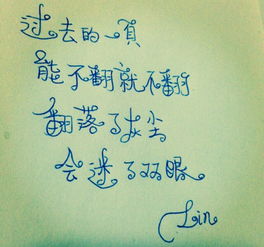 过去的一頁
能不翻就不翻
翻落了灰尘
会迷了双眼
Lin